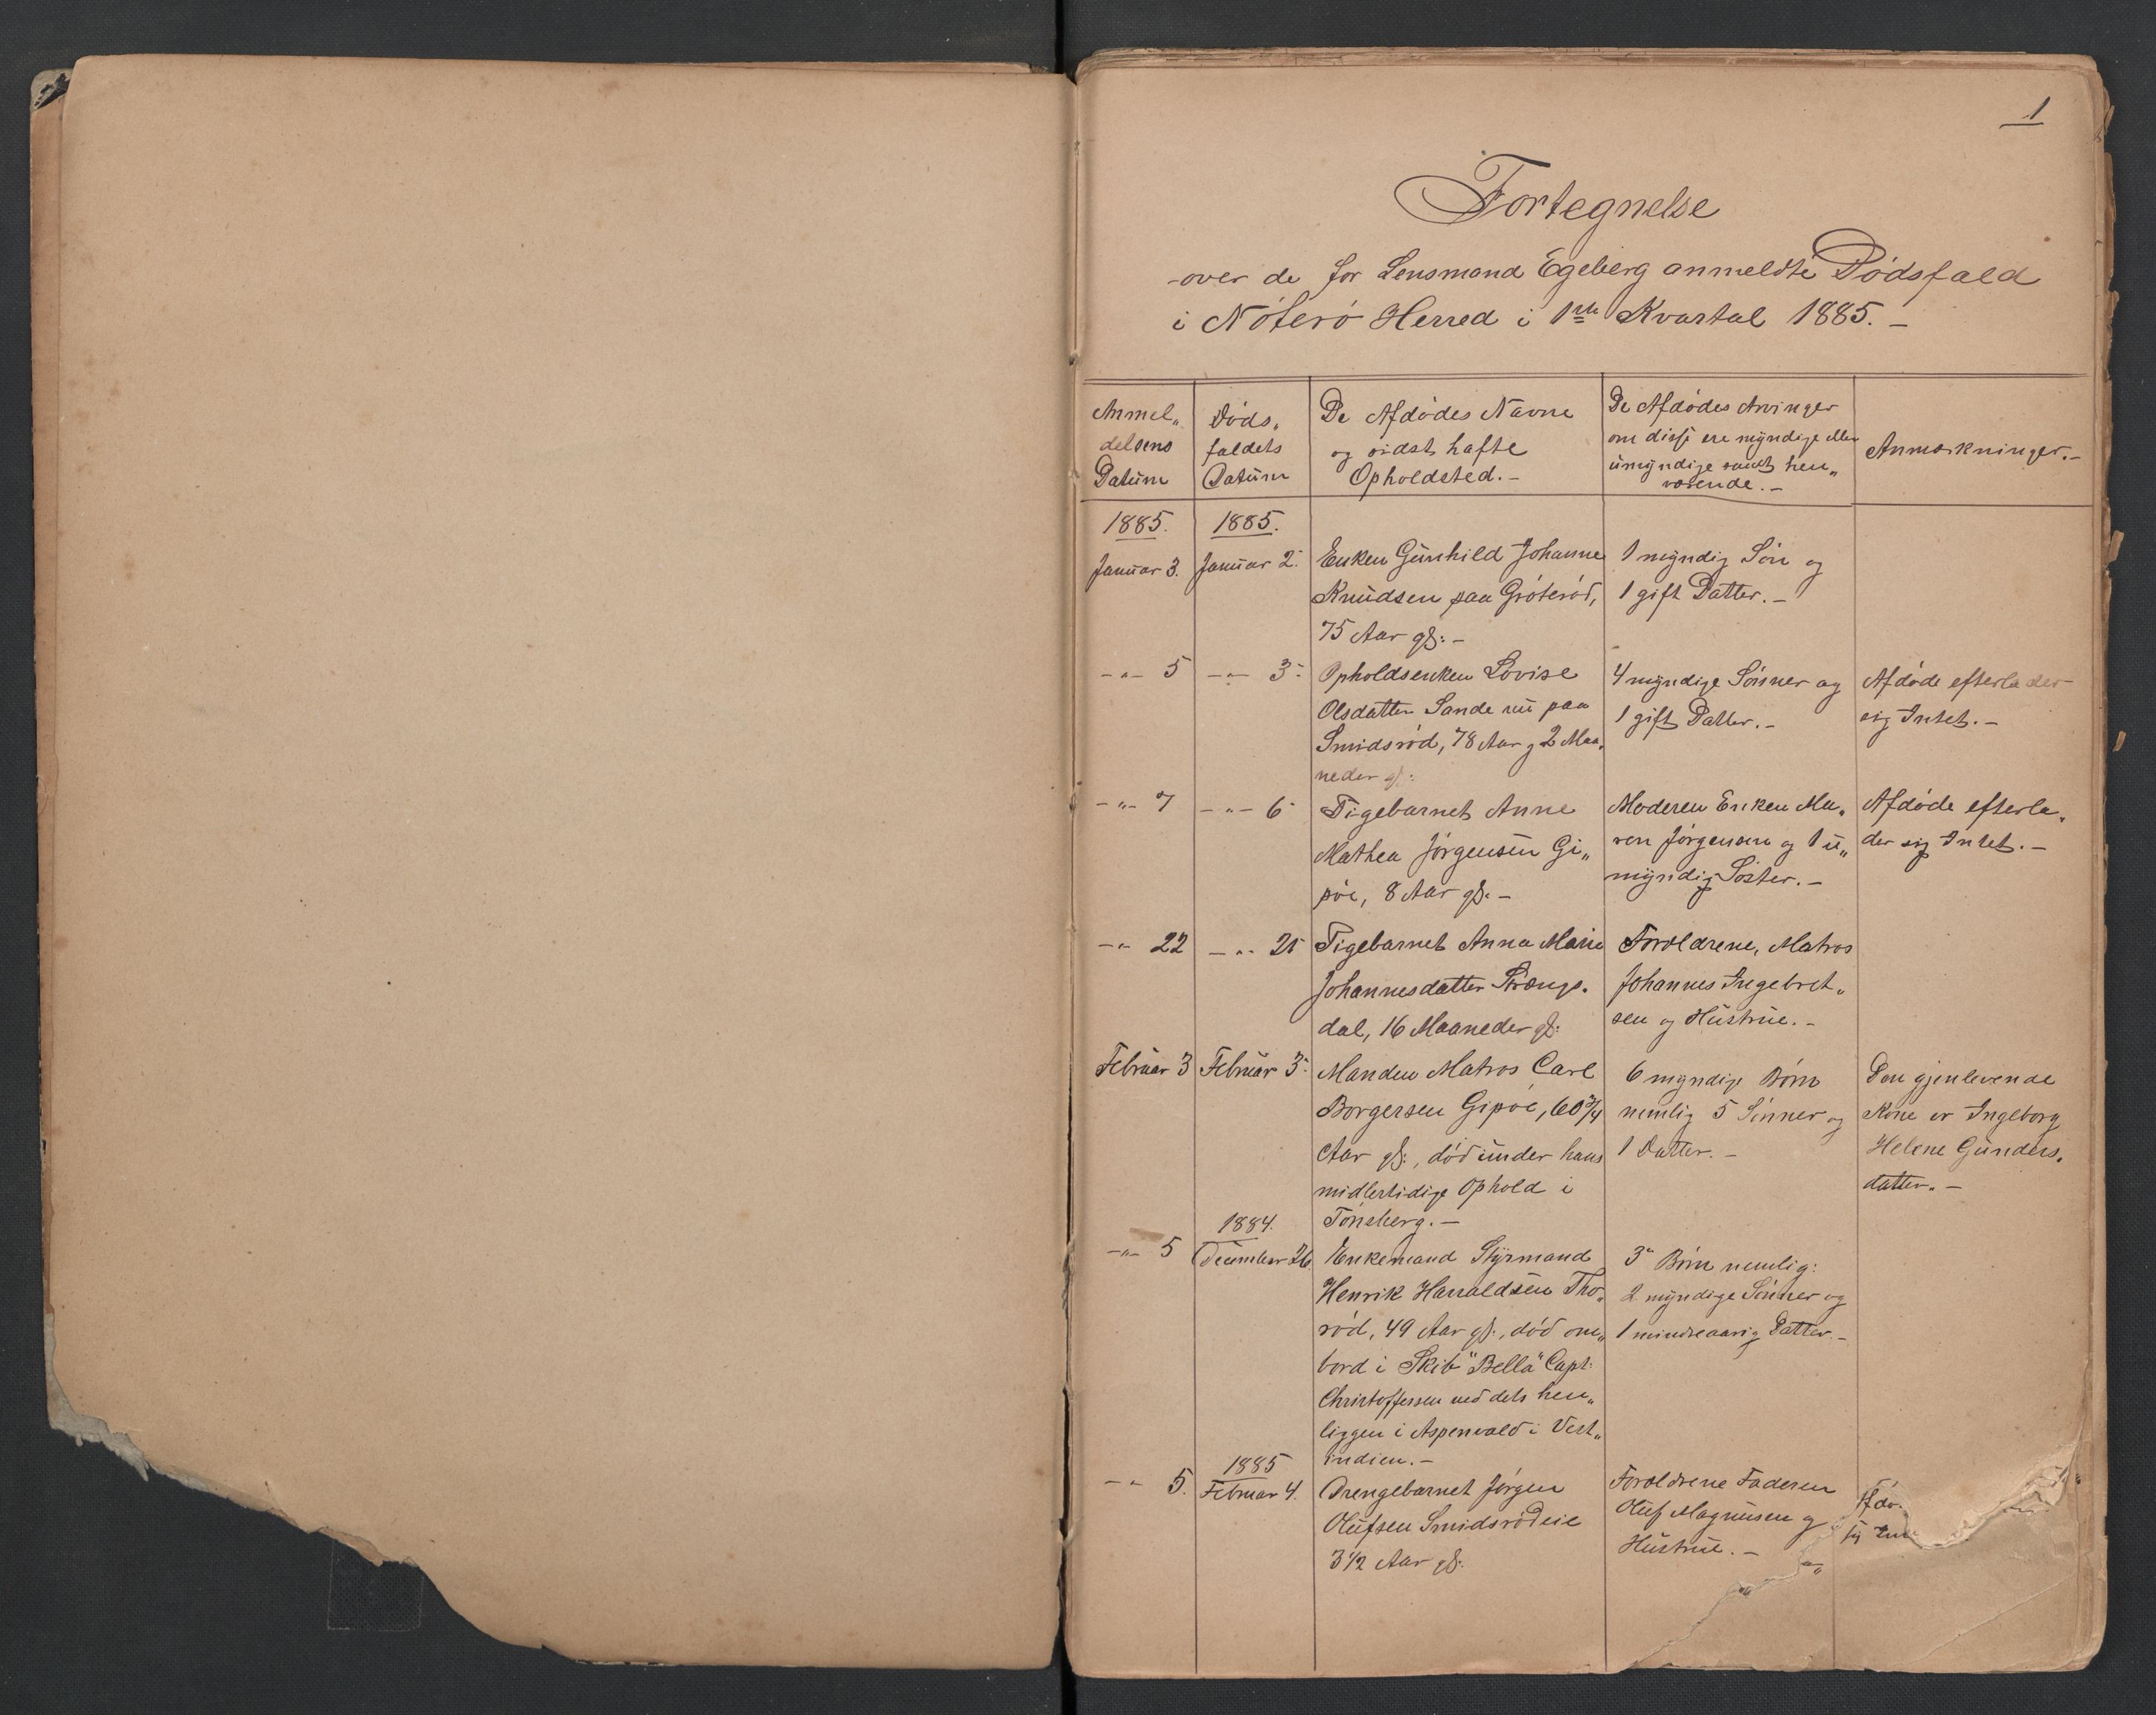 1
Fortegnelse
over de for Lensmand Egeberg anmeldte Dødsfald
i Nøterø Herred i 1ste Kvartal 1885. –
Anmel„
delsens
Datum
Døds„
faldets
Datum
De Afdødes Navne
og sidst hafte
Opholdsted. –
De Afdødes Arvinger
om disse ere myndige eller
umyndige samt hen„
værende. –
Anmærkninger. –
1885.
Januar 3.
1885.
Januar 2.
Enken Gunhild Johanne
Knudsen paa Gróterød,
75 Aar gl: –
1 myndig Søn og
1 gift Datter. –
–„– 5
–„– 3.
Opholdsenken Lovise
Olsdatter Sande nu paa
Smidsrød, 78 Aar og 2 Maa„
neder gl:
4 myndige Sønner og
1 gift Datter. –
Afdøde efterlader
sig Intet. –
–„– 7
–„– 6
Pigebarnet Anne
Mathea Jørgensen Gi„
pøe, 8 Aar gl. –
Moderen Enken Ma„
ren Jørgensen og 1 u„
myndig Søster. –
Afdøde efterla„
der sig Intet. –
–„– 22
–„– 21
Pigebarnet Anna Marie
Johannesdatter Strengs„
dal, 16 Maaneder gl:
Forældrene, Matros
Johannes Ingebret„
sen og Hustrue. –
Februar 3
Februar 3.
Manden Matros Carl
Borgersen Gipøe, 60 3/4
Aar gl:, død under hans
midlertidige Ophold i
Tønsberg. –
6 myndige Børn
nemlig 5 Sønner og
1 Datter. –
Den gjenlevende
Kone er Ingeborg
Helene Gunders„
datter. –
–„– 5
1884.
December 26.
Enkemand Styrmand
Henrik Harraldsen Tho„
rød, 49 Aar gl., død om„
bord i Skib "Bella" Capt:
Christoffersen ved dets hen„
liggen i Aspenvald i Vest„
indien. –
3 Børn nemlig:
2 myndige Sønner og
1 mindreaarig Datter. –
–„– 5.
1885
Februar 4.
Drengebarnet Jørgen
Olufsen Smidsrødeie
3 1/2 Aar gl.
Forældrene Faderen
Oluf Magnusen og
Hustrue. –
Afdø
sig